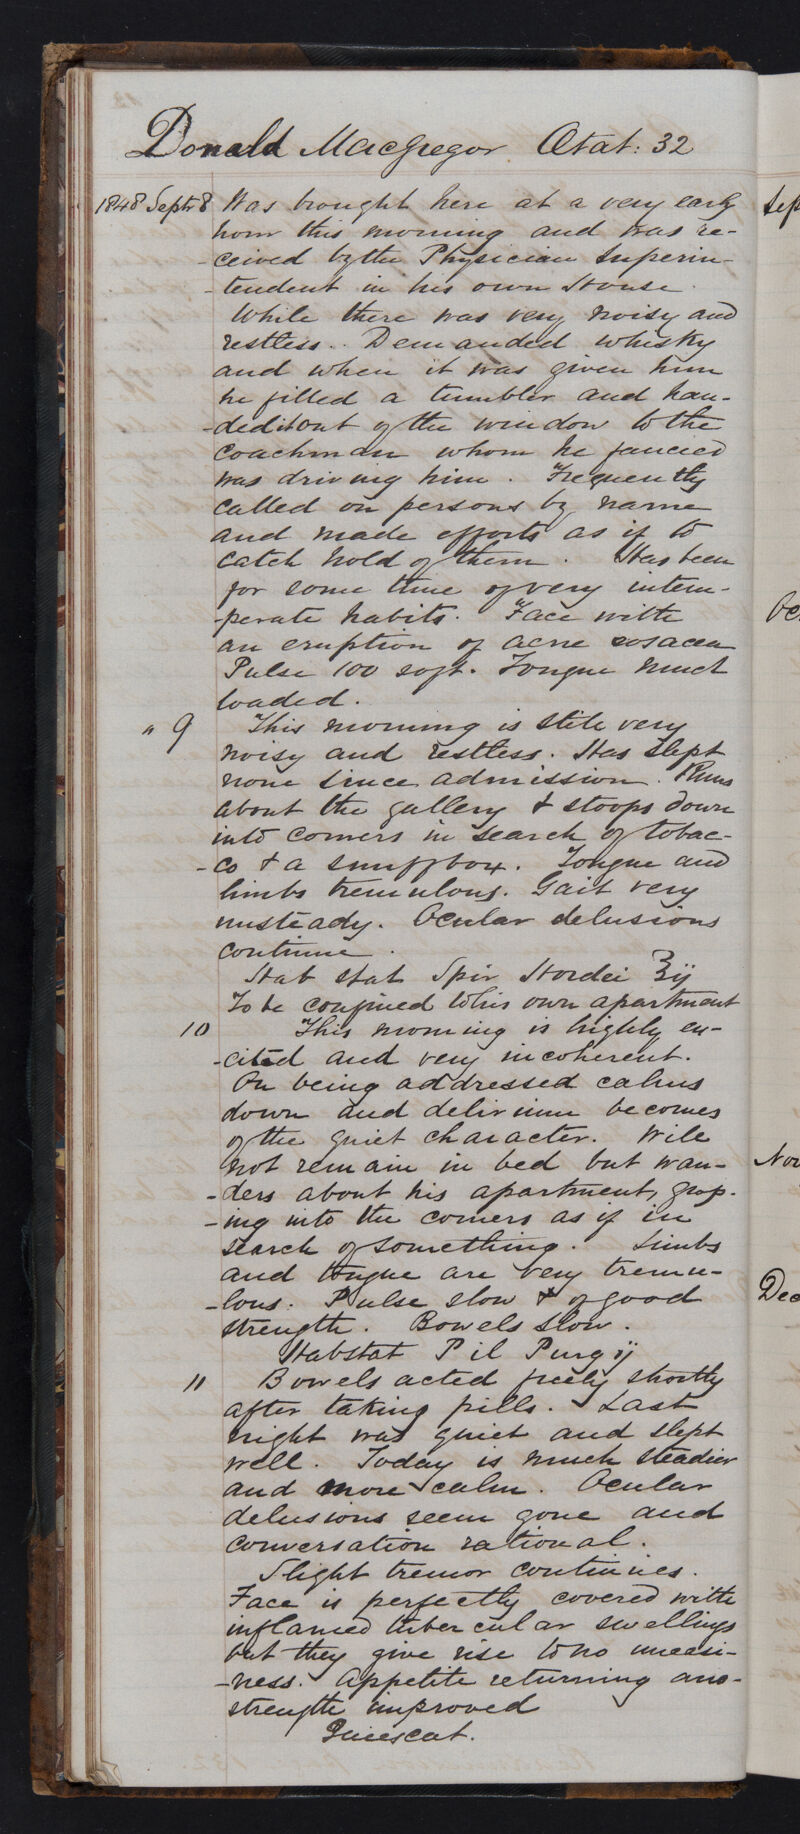 Donald MacGregor Ætat: 32
1848 Septr 8 Was brought here at a very early
hour this morning and was re-
-ceived by the Physician Superin-
-tendent in his own House.
While there was very noisy and
restless. Demanded whisky
and when it was given him
he filled a tumbler and han-
-ded it out of the window to the
coachman whom he fancied
was driving him. Frequently
called on persons by name
and made efforts as if to
catch hold of them. Has been
for some time of very intem-
-perate habits. Face with
an eruption of acne rosacea
Pulse 100 soft. Tongue much
loaded.
" 9 This morning is still very
noisy and restless. Has slept
none since admission. Runs
about the gallery & stoops down
into corners in search of tobac-
-co & a snuffbox. Tongue and
limbs tremulous. Gait very
unsteady. Ocular delusions
continue.
Hab stat Spir Hordei ℥ij
To be confined to his own apartment
10 This morning is highly ex-
-cited and very incoherent.
On being addressed calms
down and delirium becomes
of the quiet character. Will
not remain in bed but wan-
-ders about his apartment, grop-
-ing into the corners as if in
search of something. Limbs
and tongue are very tremu-
-lous. Pulse slow & of good
strength. Bowels slow.
Hab stat Pil Purg ij
11 Bowels acted freely shortly
after taking pills. Last
night was quiet and slept
well. Today is much steadier
and more calm. Ocular
delusions seem gone and
conversation rational.
Slight tremor continues.
Face is perfectly covered with
inflamed tubercular swellings
but they give rise to no uneasi-
-ness. Appetite returning and
strength improved
Quiescat.
Sep
Oc
Nov
Dec